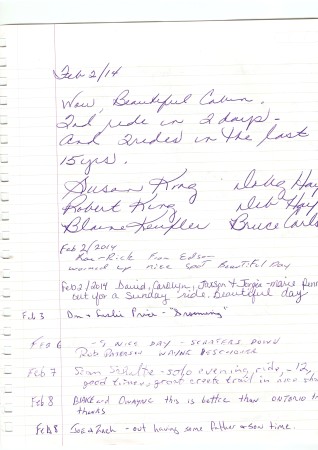 Feb 2/14
Wow, Beautiful Cabin.
2nd ride in 2 days -
And 2 rides in the last
15 yrs.
Susan King
Robert King Deb Hay
Blaine Bruce Carls
Feb 2/2014
Rick From Edson
warmed up nice spot Beautiful Day
Feb 2/2014 David, Carolyn,
out for a Sunday ride. Beautiful day
Feb 3 Don & Leslie Price - "Drumming"
Feb 6 -5 NICE DAY - DOWN
Feb 7 Stan - solo evening ride, -12,
good times, great trail in nice
Feb 8 BLAKE and DWAYNE this is better than ONTARIO
thanks
Feb 8 Joe & Zach - out having some father & son time.